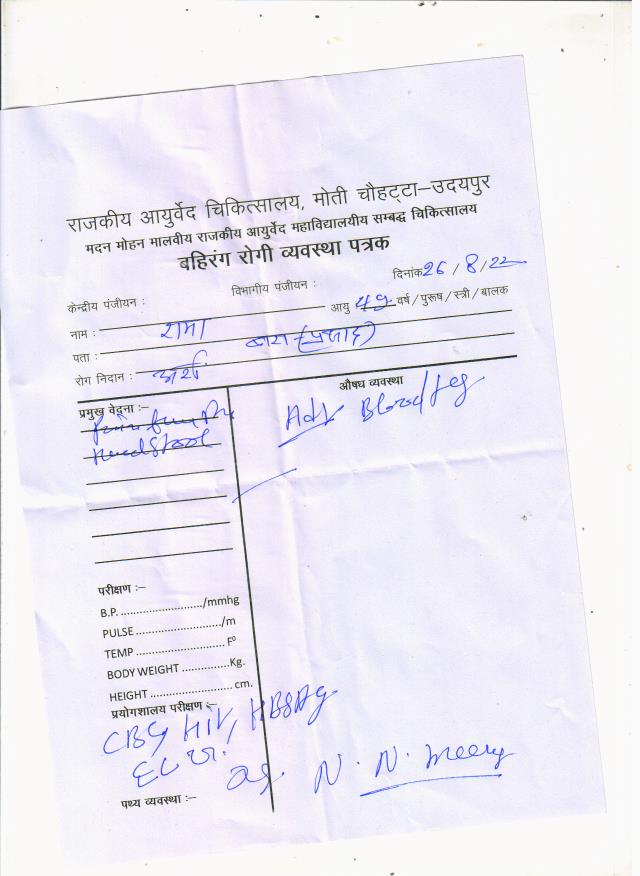 राजकीय आयुर्वेद चिकित्सालय, मोती चौहट्टा–उदयपुर
मदन मोहन मालवीय राजकीय आयुर्वेद महाविद्यालयीय सम्बद्ध चिकित्सालय
बहिरंग रोगी व्यवस्था पत्रक
केन्द्रीय पंजीयन : विभागीय पंजीयन : दिनांक 26/8/22
नाम : रामा आयु 49 वर्ष / पुरूष / स्त्री / बालक
पता :
रोग निदान : अर्श
प्रमुख वेदना :– औषध व्यवस्था
Hard Stool
Adv Blood
परीक्षण :–
B.P. ........................./mmhg
PULSE ........................../m
TEMP ........................... F⁰
BODY WEIGHT ..............Kg.
HEIGHT ......................... cm.
प्रयोगशालय परीक्षण :–
CBC, HIV, HBSAg
पथ्य व्यवस्था :–
N. N.